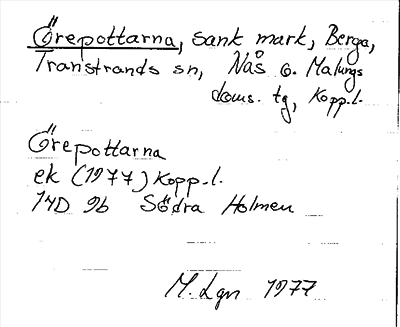 Örepottarna, sank mark, Berga,
Transtrands sn, Nås o. Malungs
doms. tg, Kopp.l.
Örepottarna
ek (1977) Kopp.l.
14D 9b Södra Holmen
M. Lgn 1977